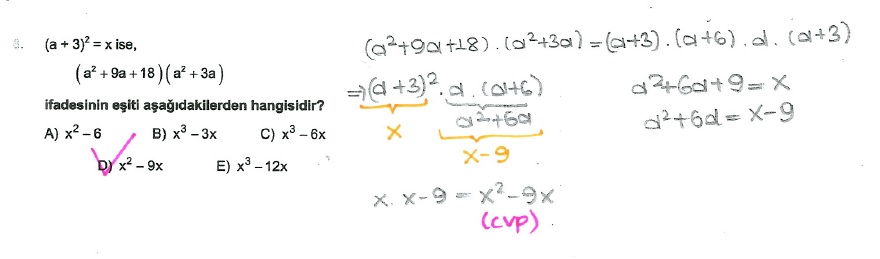 6. (a + 3)² = x ise,
(a² + 9a + 18)(a² + 3a)
ifadesinin eşiti aşağıdakilerden hangisidir?
A) x² – 6 B) x³ – 3x C) x³ – 6x
D) x² – 9x E) x³ – 12x
(a²+9a+18).(a²+3a)=(a+3).(a+6).a.(a+3)
⇒(a+3)².a.(a+6)
x
a²+6a
x-9
a²+6a+9=x
a²+6a=x-9
x. x-9 = x²-9x
(cvp)